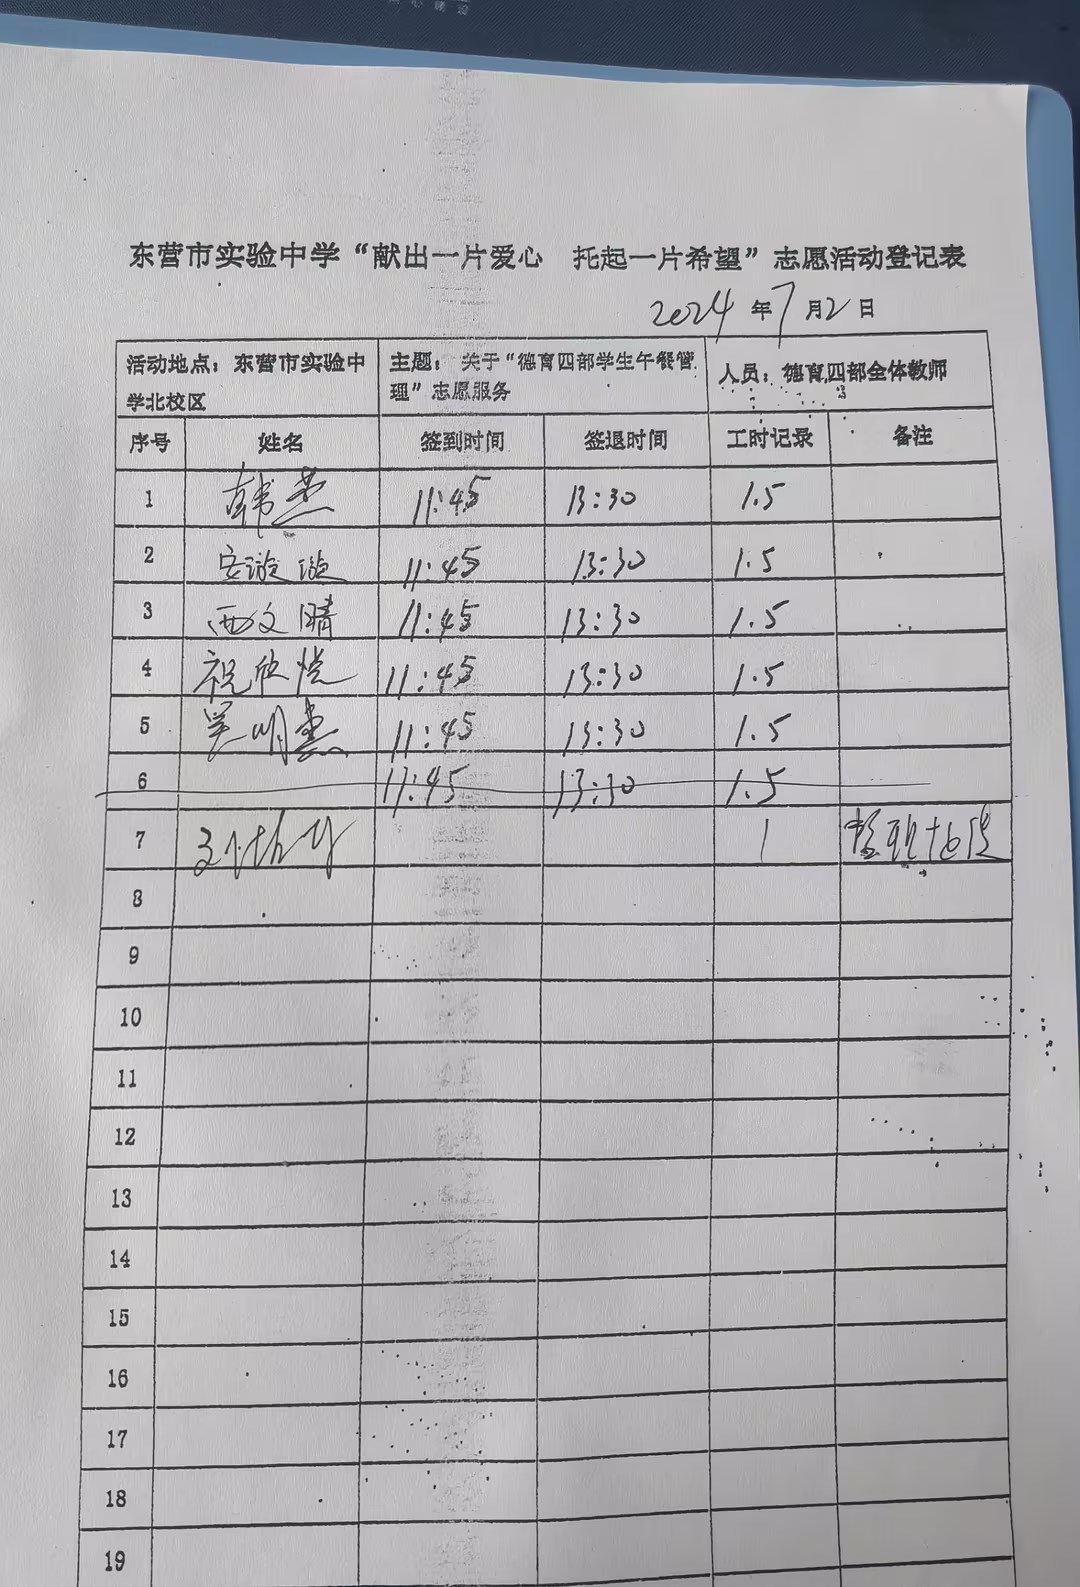 东营市实验中学“献出一片爱心 托起一片希望”志愿活动登记表
2024年7月2日
活动地点：东营市实验中学北校区 主题：关于“德育四部学生午餐管理”志愿服务 人员：德育四部全体教师
序号 姓名 签到时间 签退时间 工时记录 备注
1 韩杰 11:45 13:30 1.5
2 安璇璇 11:45 13:30 1.5
3 西文晴 11:45 13:30 1.5
4 祝欣悦 11:45 13:30 1.5
5 吴明杰 11:45 13:30 1.5
6 11:45 13:30 1.5
7 1
8
9
10
11
12
13
14
15
16
17
18
19